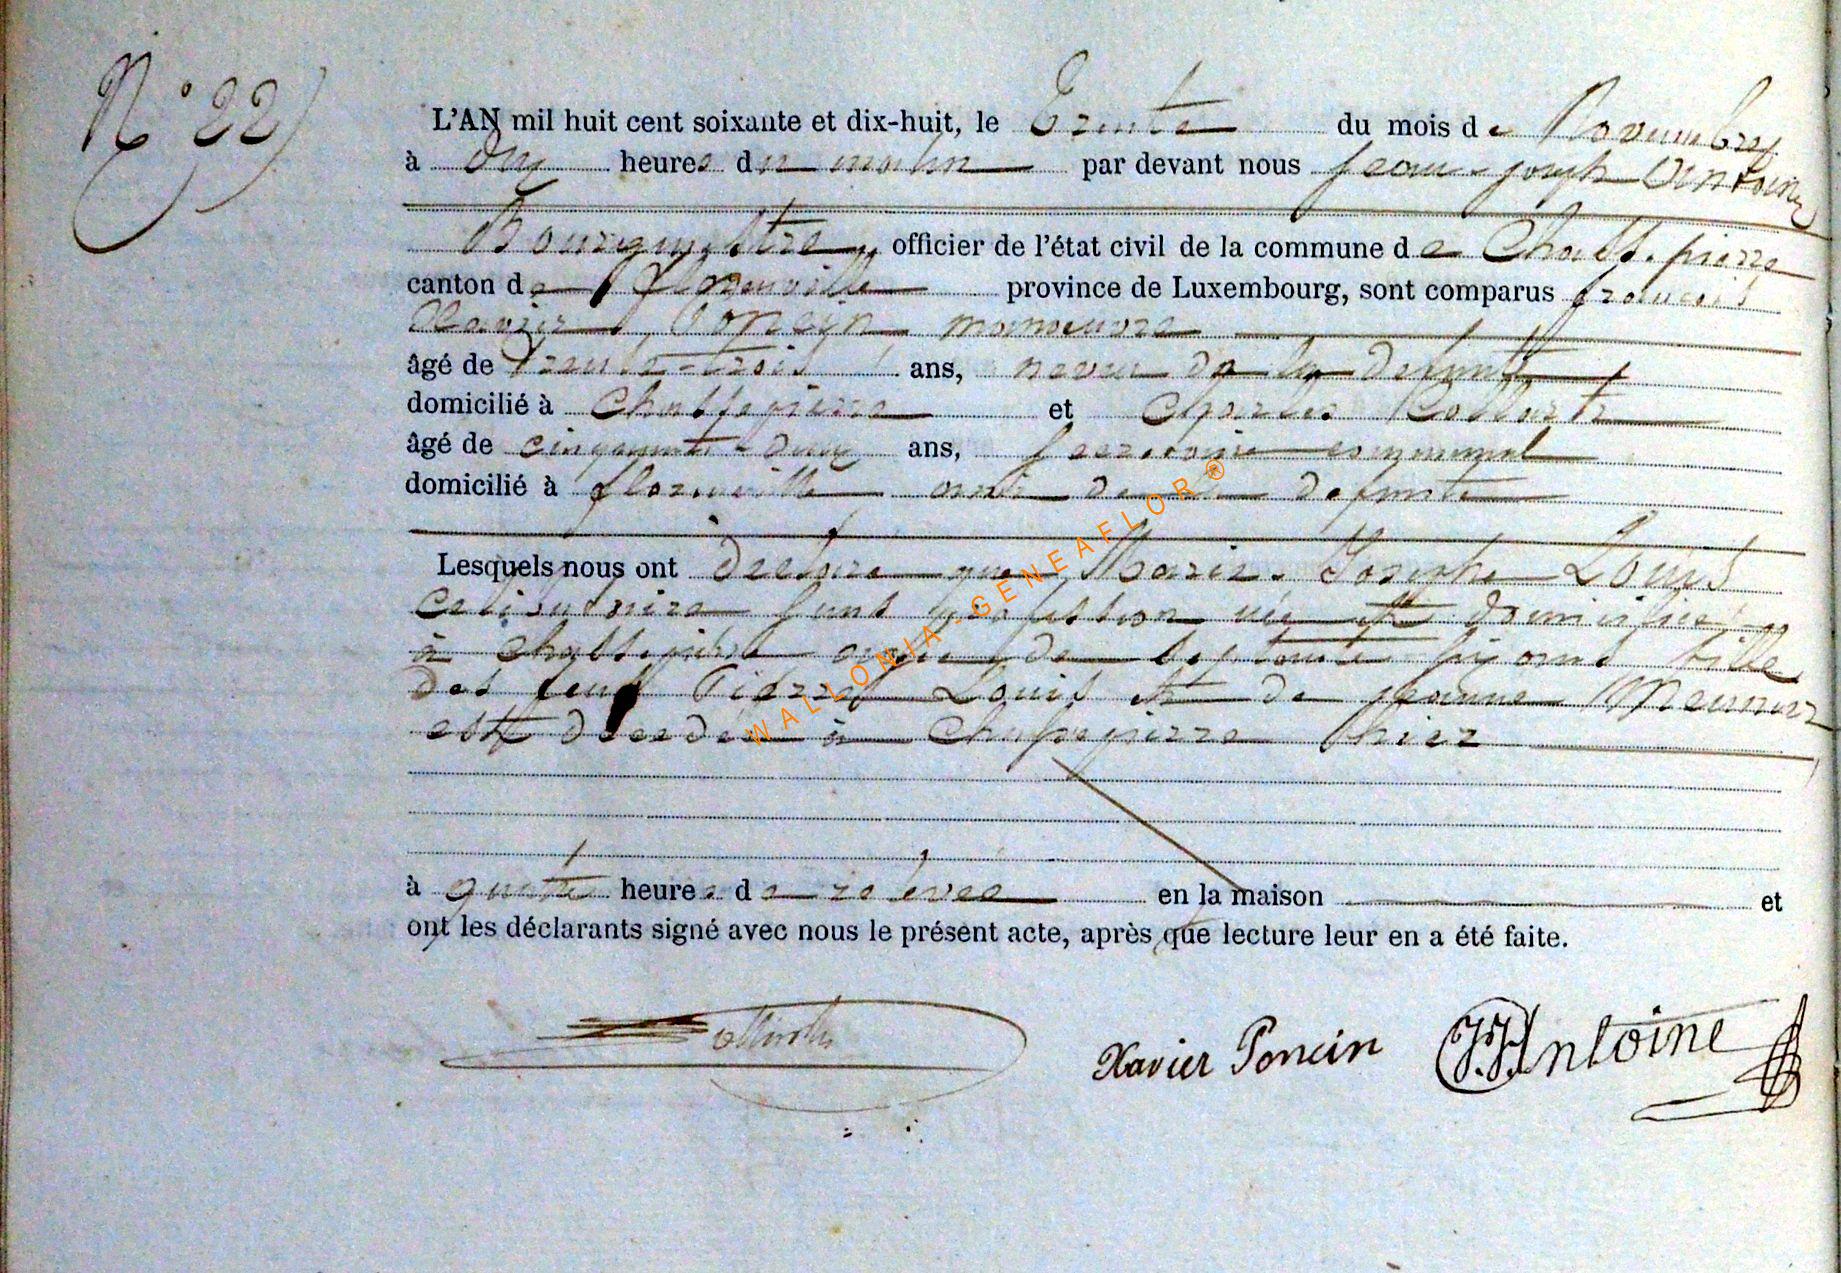 N° 22
L'AN mil huit cent soixante et dix-huit, le Trente du mois de Novembre
à dix heures du matin par devant nous Jean-joseph Antoine
Bourgmestre, officier de l'état civil de la commune de Chassepierre
canton de florenville province de Luxembourg, sont comparus francois
Xavier Poncin manoeuvre
âgé de Trente-trois ans, neveu de la defunte
domicilié à Chassepierre et Charles
âgé de cinquante-deux ans, communal
domicilié à florenville ami de la defunte
Lesquels nous ont declaré que Marie-Josephe Louis
celibataire sans profession née et domiciliée
à chassepierre agée de septante ans fille
des feus Pierre Louis et de jeanne Meunier
est decedée à Chassepierre hier
à quatre heures de relevée en la maison et
ont les déclarants signé avec nous le présent acte, après que lecture leur en a été faite.
Xavier Poncin JJAntoine
WALLONIA-GENEAFLOR®